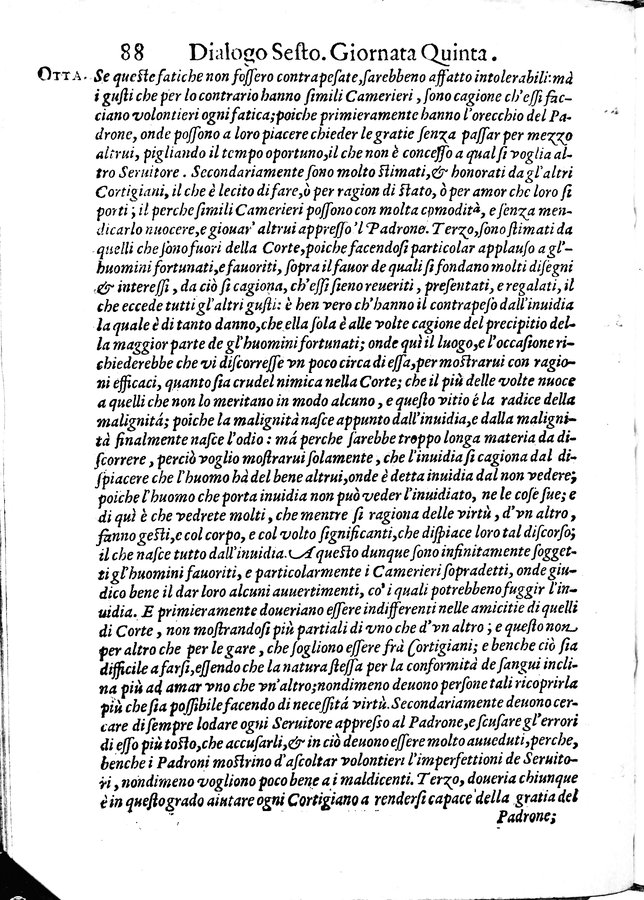 88 Dialogo Sesto. Giornata Quinta.
OTTA. Se queste fatiche non fossero contrapesate, sarebbeno affatto intolerabili: mà
i gusti che per lo contrario hanno simili Camerieri, sono cagione ch'essi fac-
ciano volontieri ogni fatica; poiche primieramente hanno l'orecchio del Pa-
drone, onde possono a loro piacere chieder le gratie senza passar per mezzo
altrui, pigliando il tempo oportuno, il che non è concesso a qual si voglia al-
tro Seruitore. Secondariamente sono molto stimati, & honorati da gl'altri
Cortigiani, il che è lecito di fare, ò per ragion di stato, ò per amor che loro si
porti; il perche simili Camerieri possono con molta comodità, e senza men-
dicarlo nuocere, e giouar' altrui appresso 'l Padrone. Terzo, sono stimati da
quelli che sono fuori della Corte, poiche facendosi particolar applauso a gl'-
huomini fortunati, e fauoriti, sopra il fauor de quali si fondano molti disegni
& interessi, da ciò si cagiona, ch'essi sieno reueriti, presentati, e regalati, il
che eccede tutti gl'altri gusti: è ben vero ch'hanno il contrapeso dall'inuidia
la quale è di tanto danno, che ella sola è alle volte cagione del precipitio del-
la maggior parte de gl'huomini fortunati; onde quì il luogo, e l'occasione ri-
chiederebbe che vi discorresse vn poco circa di essa, per mostrarui con ragio-
ni efficaci, quanto sia crudel nimica nella Corte; che il più delle volte nuoce
a quelli che non lo meritano in modo alcuno, e questo vitio é la radice della
malignitá; poiche la malignità nasce appunto dall'inuidia, e dalla maligni-
tà finalmente nasce l'odio: má perche sarebbe troppo longa materia da di-
scorrere, perciò voglio mostrarui solamente, che l'inuidia si cagiona dal di-
spiacere che l'huomo hà del bene altrui, onde è detta inuidia dal non vedere;
poiche l'huomo che porta inuidia non può veder l'inuidiato, ne le cose sue; e
di quì è che vedrete molti, che mentre si ragiona delle virtù, d'vn altro,
fanno gesti, e col corpo, e col volto significanti, che dispiace loro tal discorso;
il che nasce tutto dall'inuidia. A questo dunque sono infinitamente sogget-
ti gl'huomini fauoriti, e particolarmente i Camerieri sopradetti, onde giu-
dico bene il dar loro alcuni auuertimenti, co' i quali potrebbeno fuggir l'in-
uidia. E primieramente doueriano essere indifferenti nelle amicitie di quelli
di Corte, non mostrandosi più partiali di vno che d'vn altro; e questo non
per altro che per le gare, che sogliono essere frà Cortigiani; e benche ciò sia
difficile a farsi, essendo che la natura stessa per la conformità de sangui incli-
na più ad amar vno che vn'altro; nondimeno deuono persone tali ricoprirla
più che sia possibile facendo di necessitá virtù. Secondariamente deuono cer-
care di sempre lodare ogni Seruitore appresso al Padrone, e scusare gl'errori
di esso più tosto, che accusarli, & in ciò deuono essere molto auueduti, perche,
benche i Padroni mostrino d'ascoltar volontieri l'imperfettioni de Seruito-
ri, nondimeno vogliono poco bene a i maldicenti. Terzo, doueria chiunque
è in questo grado aiutare ogni Cortigiano a rendersi capace della gratia del
Padrone;